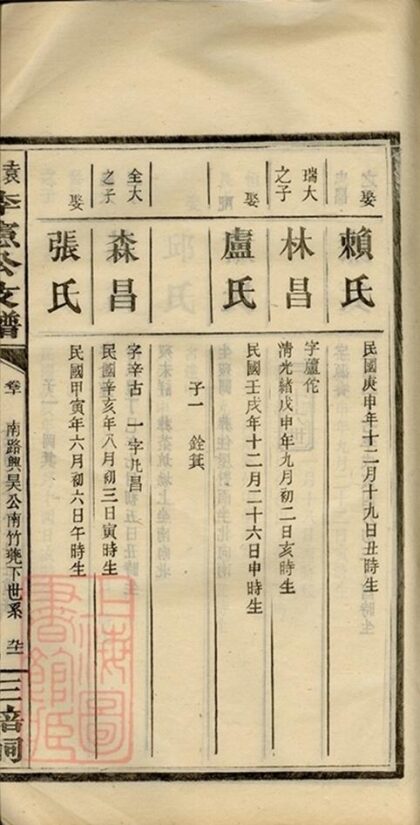 娶
賴氏
民國庚申年十二月十九日丑時生
瑞大之子
林昌
字蘆佗
清光緒戊申年九月初二日亥時生
娶
盧氏
民國壬戌年十二月二十六日申時生
子一 銓蓂
全大之子
森昌
字辛古 一字凡昌
民國辛亥年八月初三日寅時生
娶
張氏
民國甲寅年六月初六日午時生
袁李憲公支譜
南路興昊公南竹
下世系
三培祠
上海圖書館臧